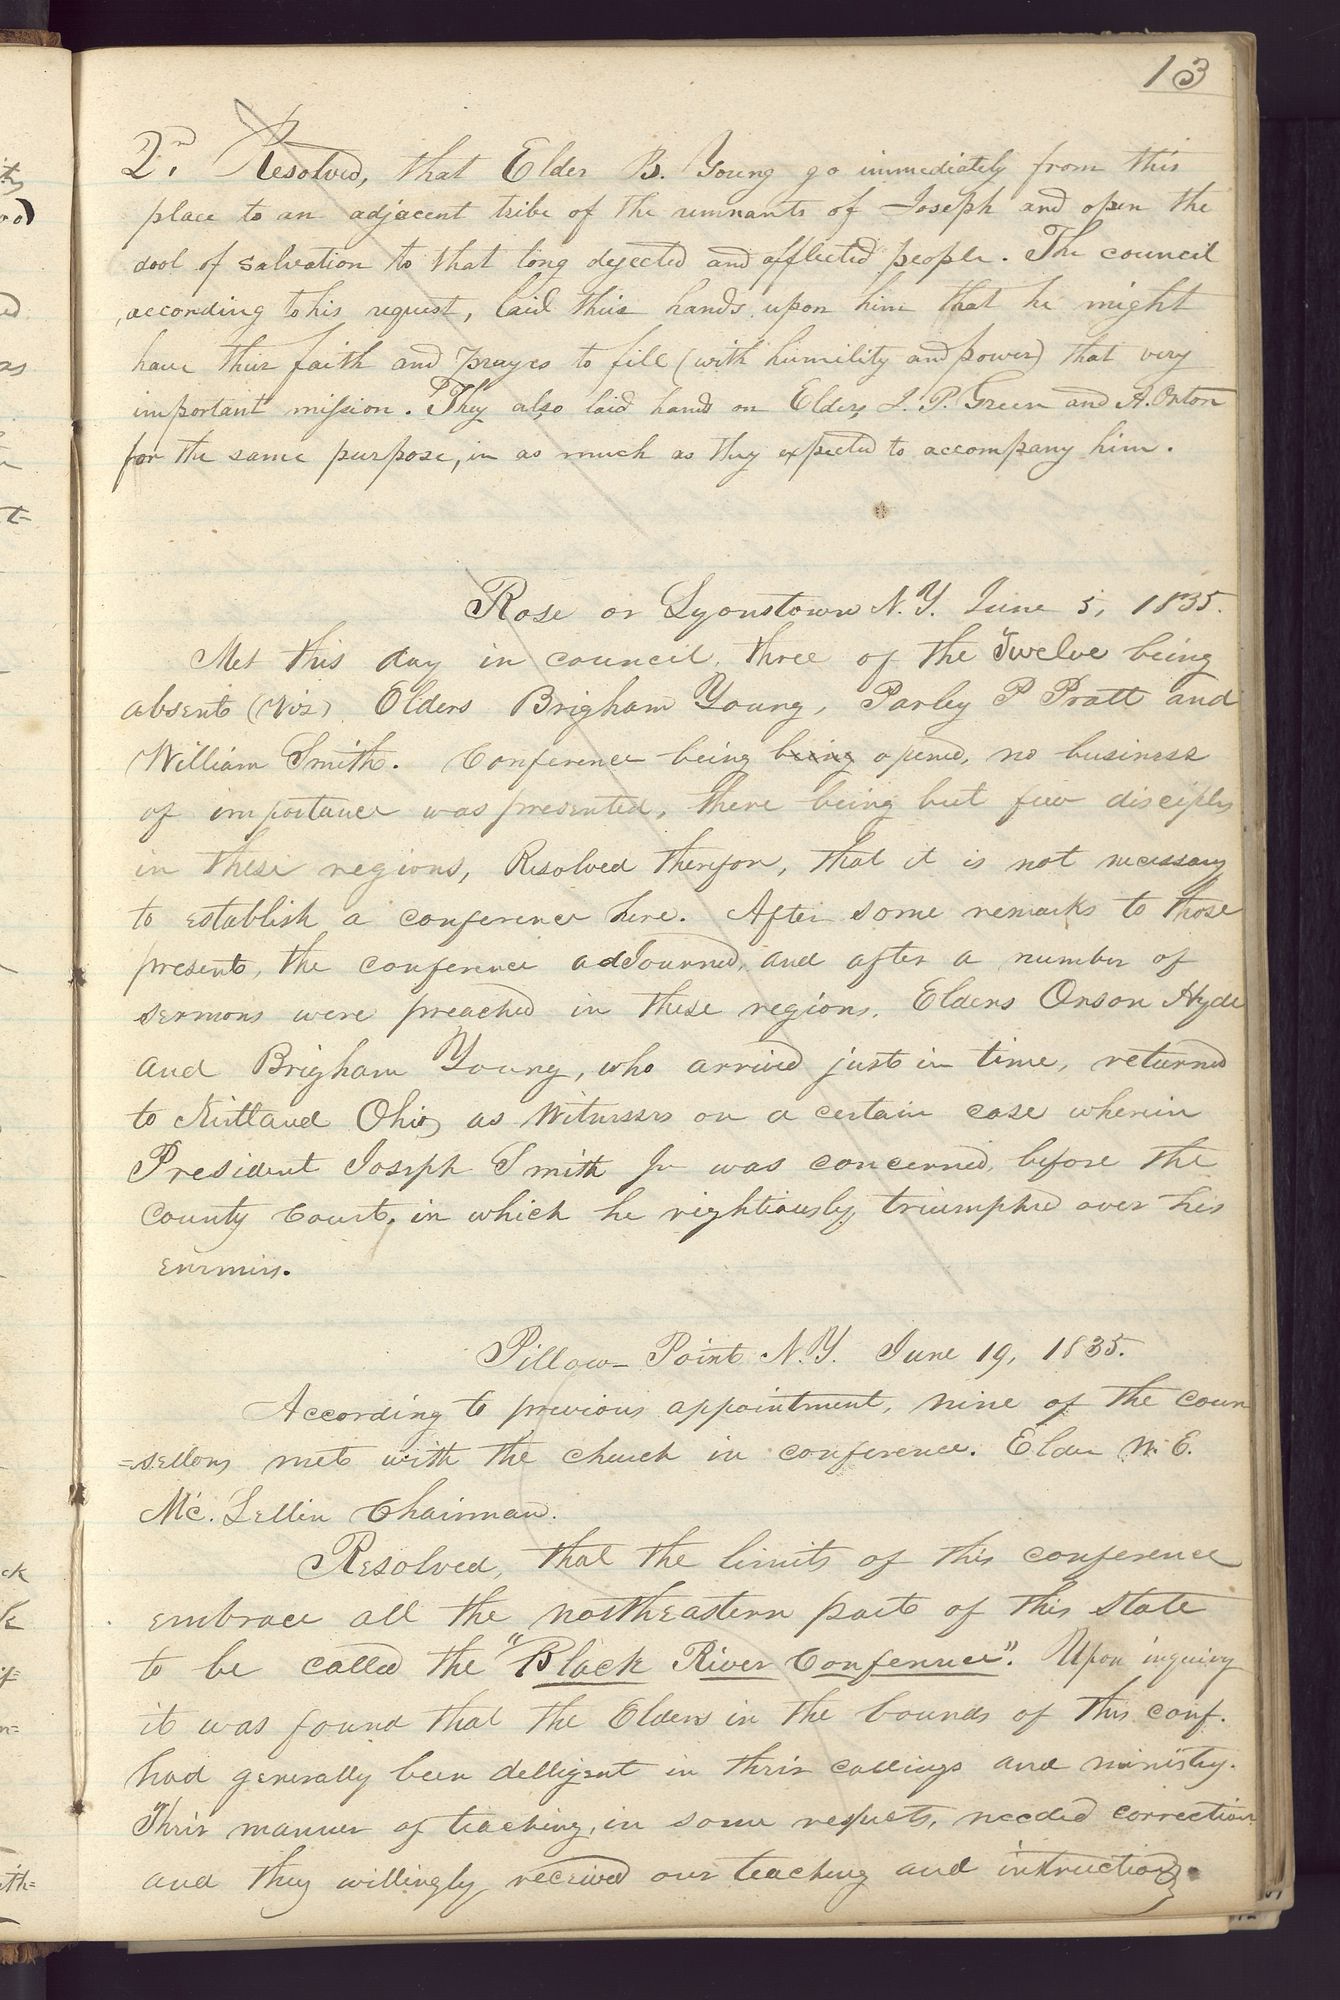 13
2.nd Resolved, that Elder B. Young go immediately from this
place to an adjacent tribe of the remnants of Joseph and open the
dool of salvation to that long dejected and afflicted people. The council
according to his request, laid thier hands upon him that he might
have thier faith and prayes to fill (with humility and power) that very
important mission. They also laid hands on Elders J. P. Green and A. Orton
for the same purpose, in as much as they expected to accompany him.
Rose or Lyonstown N.Y. June 5, 1835.
Met this day in council, three of the Twelve being
absent (Viz) Elders Brigham Young, Parley P Pratt and
William Smith. Conference being being opened, no business
of importance was presented, there being but few disciples
in these regions, Resolved therefore, that it is not necessary
to establish a conference here. After some remarks to those
present, the conference adJourned, and after a number of
sermons were preached in these regions, Elders Orson Hyde
and Brigham Young, who arrived just in time, returned
to Kirtland Ohio, as Witnesses on a certain case wherein
President Joseph Smith Jr was concerned, before the
County Court, in which he rightiously triumphed over his
enemies.
Pillow-Point N.Y. June 19, 1835.
According to previous appointment, nine of the coun
=sellors met with the church in conference. Elder W. E.
Mc. Lellin Chairman.
Resolved, that the limits of this conference
embrace all the northeastern part of this State
to be called the "Black River Conference". Upon inquiry
it was found that the Elders in the bounds of this conf.
had generally been delligent in their callings and ministry.
Their manner of teaching, in some respects, needed correction
and they willingly received our teaching and instruction.